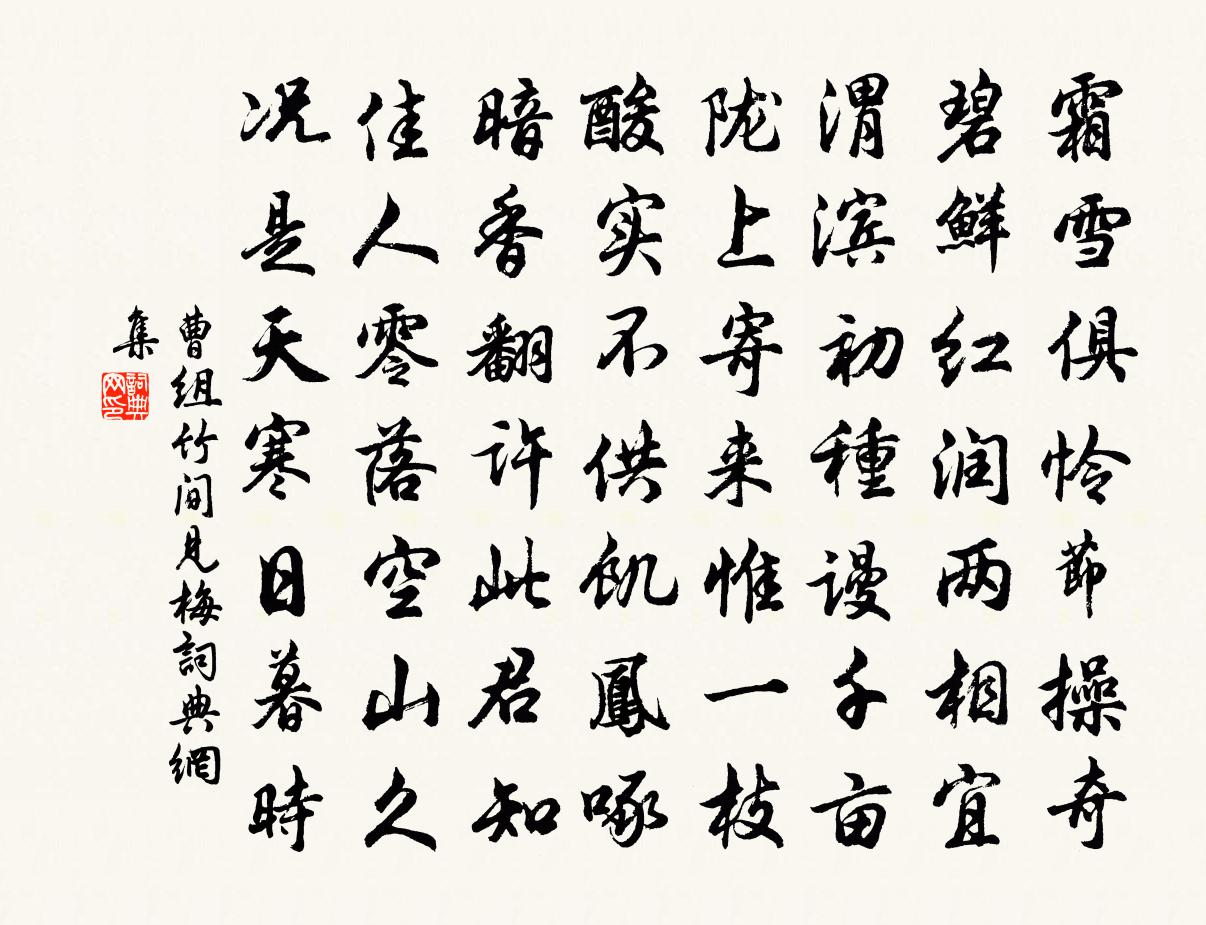 霜雪俱怜節操奇
碧鲜红润两相宜
渭滨初種谩千亩
陇上寄来惟一枝
酸实不供飢鳳啄
暗香翻许此君知
佳人零落空山久
况是天寒日暮時
曹组竹间见梅詞典網
集
詞典
网印